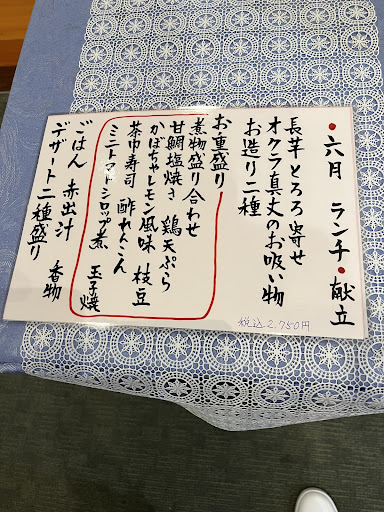 ・六月 ランチ・献立
長芋とろろ寄せ
オクラ真丈のお吸い物
お造り二種
お重盛り
煮物盛り合わせ
甘鯛塩焼き 鶏天ぷら
かぼちゃレモン風味 枝豆
茶巾寿司 酢れんこん
ミニトマトシロップ煮 玉子焼
ごはん 赤出汁 香物
デザート二種盛り
税込2,750円